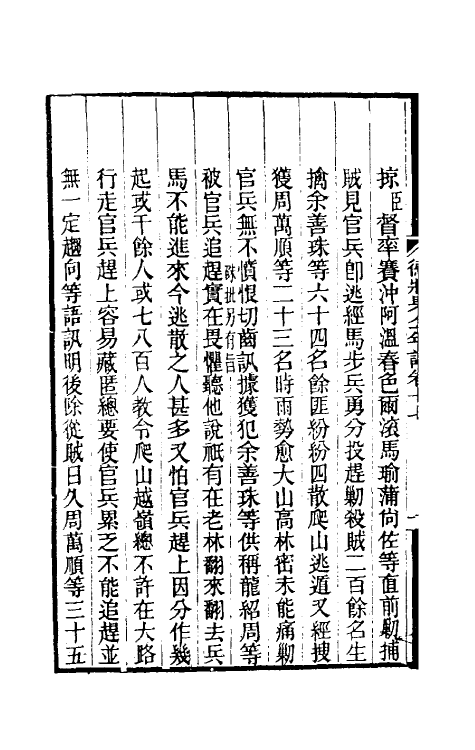 掠臣督率賽沖阿溫春色爾滾馬瑜蒲尙佐等直前勦捕
賊見官兵卽逃經馬步兵勇分投趕勦殺賊二百餘名生
擒余善珠等六十四名餘匪紛紛四散爬山逃遁又經搜
獲周萬順等二十三名時雨勢愈大山高林密未能痛勦
官兵無不憤恨切齒訊據獲犯余善珠等供稱龍紹周等
硃批另有旨
被官兵追趕實在畏懼聽他說祇有在老林翻來翻去兵
馬不能進來今逃散之人甚多又怕官兵趕上因分作幾
起或千餘人或七八百人教令爬山越嶺總不許在大路
行走官兵趕上容易藏匿總要使官兵累乏不能追趕並
無一定趨向等語訊明後除從賊日久周萬順等三十五